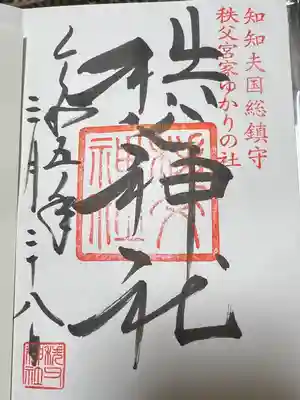 知知夫国総鎮守
秩父宮家ゆかりの社
秩父神社
令和五年
三月二十八日